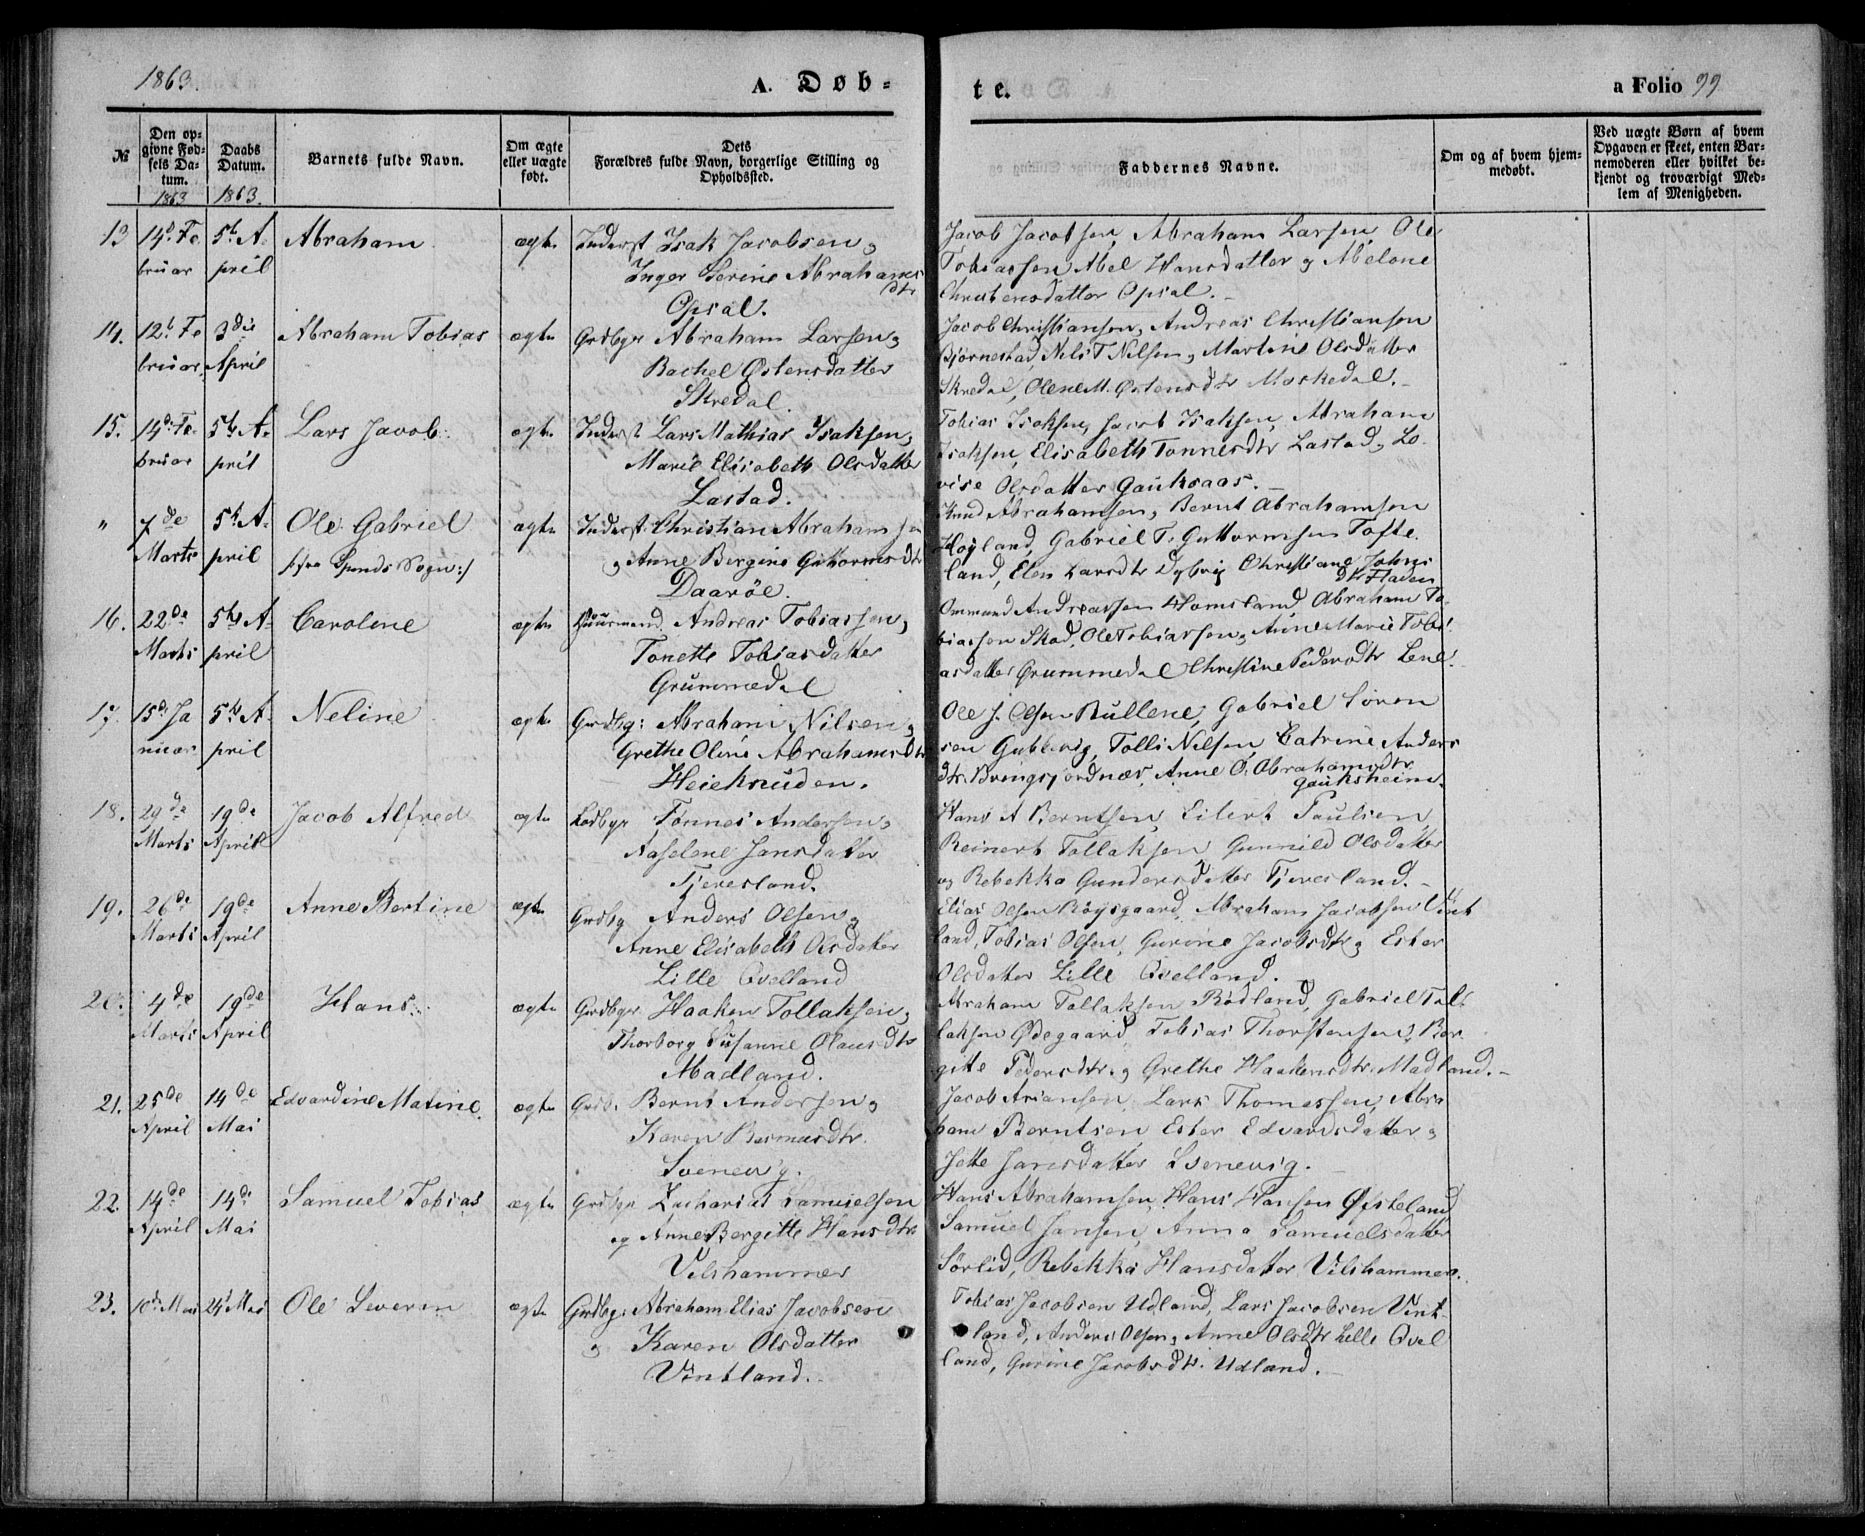 1863.
A. Døb-
te.
a Folio 99
№
Den opgivne Fødsels Datum. 1863
Daabs Datum. 1863.
Barnets fulde Navn.
Om ægte eller uægte født.
Dets Forældres fulde Navn, borgerlige Stilling og Opholdssted.
Faddernes Navne.
Om og af hvem hjemmedøbt.
Ved uægte Børn af hvem Opgaven er skeet, enten Barnemoderen eller hvilket bekjendt og troværdigt Medlem af Menigheden.
13 14d Fe- 5te A- Abraham ægte Inderst Isak Jacobsen og
bruar pril Inger Serine Abrahams
dtr
Opsal.
Jacob Jacobsen, Abraham Larsen, Ole
Tobiassen Abel Hansdatter og Abelone
Christensdatter Opsal.
14. 12te Fe 3die Abraham Tobias ægte Grdbgr Abraham Larsen og
bruar. April Rachel Østensdatter
Skredal.
Jacob Christiansen, Andreas Christiansen
Bjørnestad, Nils T Nilsen, Martine Olsdatter
Skredal, Olene M. Østensdtr Moskedal.
15. 14de Fe- 5te A- Lars Jacob ægte Inderst Lars Mathias Isaksen og
bruar pril Marie Elisabeth Olsdatter
Lastad.
Tobias Isaksen, Jacob Isaksen, Abraham
Isaksen, Elisabeth Tønnesdtr Lastad, Lo-
vise Olsdatter Gauksaas.
" 7de 5te A- Ole Gabriel ægte Inderst Christian Abrahamsen
Marts pril /:fra Spinds Sogn:/ og Anne Bergine Guttormsdtr
Daarøe.
Knud Abrahamsen, Bernt Abrahamsen
Høyland, Gabriel T. Guttormsen Tofte
land, Elen Larsdtr Dybvig Christiane Johns
dtr Fladen
16. 22de 5te A- Caroline ægte Huusmand Andreas Tobiassen,
Marts pril Tonette Tobiasdatter
Grummedal
Ommund Andreassen Homsland, Abraham To-
biassen Skod, Ole Tobiassen, Anne Marie Tobi-
asdatter Grummedal Christine Pedersdtr Lene.
17. 15de Ja 5te A- Neline ægte Grdbg: Abraham Nilsen,
nuar pril Grethe Oline Abrahamsdtr
Heieknuden.
Ole J. Olsen Rullene, Gabriel Søren
sen Gubbevig, Tolli Nilsen, Catrine Anders
dtr. Bringsfjordnæs, Anne O. Abrahamsdtr
Gauksheim.
18. 29de 19de Jacob Alfred ægte Lodbgr Tønnes Andersen,
Marts April Aaselene Jansdatter
Tjeresland.
Hans A Berntsen, Eilert Paulsen
Reinert Tollaksen, Gunnild Olsdatter
og Rebekka Gundersdatter Tjeresland.
19. 26de 19de Anne Bertine ægte Grdbg Anders Olsen,
Marts April Anne Elisabeth Olsdatter
Lille Qvelland
Elias Olsen Røysgaard, Abraham Jacobsen Vint
land, Tobias Olsen, Gurine Jacobsdtr og Ester
Olsdatter Lille Qvelland.
20. 4de 19de Hans ægte Grdbgr Haaken Tollaksen,
Marts April Thorborg Susanne Olausdtr
Madland.
Abraham Tollaksen Rødland, Gabriel Tol-
laksen Ødegaard, Tobias Thorstensen, Ber
gitte Pedersdtr og Grethe Haakensdtr Madland.
21. 25de 14de Edvardine Matine ægte Grdb. Bernt Andersen,
April Mai Karen Rasmusdtr.
Svenevig.
Jacob Ariansen, Lars Thomassen, Abra
ham Berntsen, Ester Edvardsdatter og
Jette Jansdatter Svenevig.
22. 14de 14de Samuel Tobias ægte Grdbgr Zacharias Samuelsen
April Mai og Anne Bergitte Hansdtr
Vilshammer
Hans Abrahamsen, Hans Hansen Øfsteland
Samuel Jansen, Anna Samuelsdatter
Sørlid, Rebekka Hansdatter Vilshammer.
23. 10de Mai 24de Mai Ole Severin ægte Grdbg: Abraham Elias Jacobsen
og Karen Olsdatter
Vintland.
Tobias Jacobsen Udland, Lars Jacobsen Vint-
land, Anders Olsen, Anne Olsdtr Lille Qvel
land, Gurine Jacobsdtr. Udland.